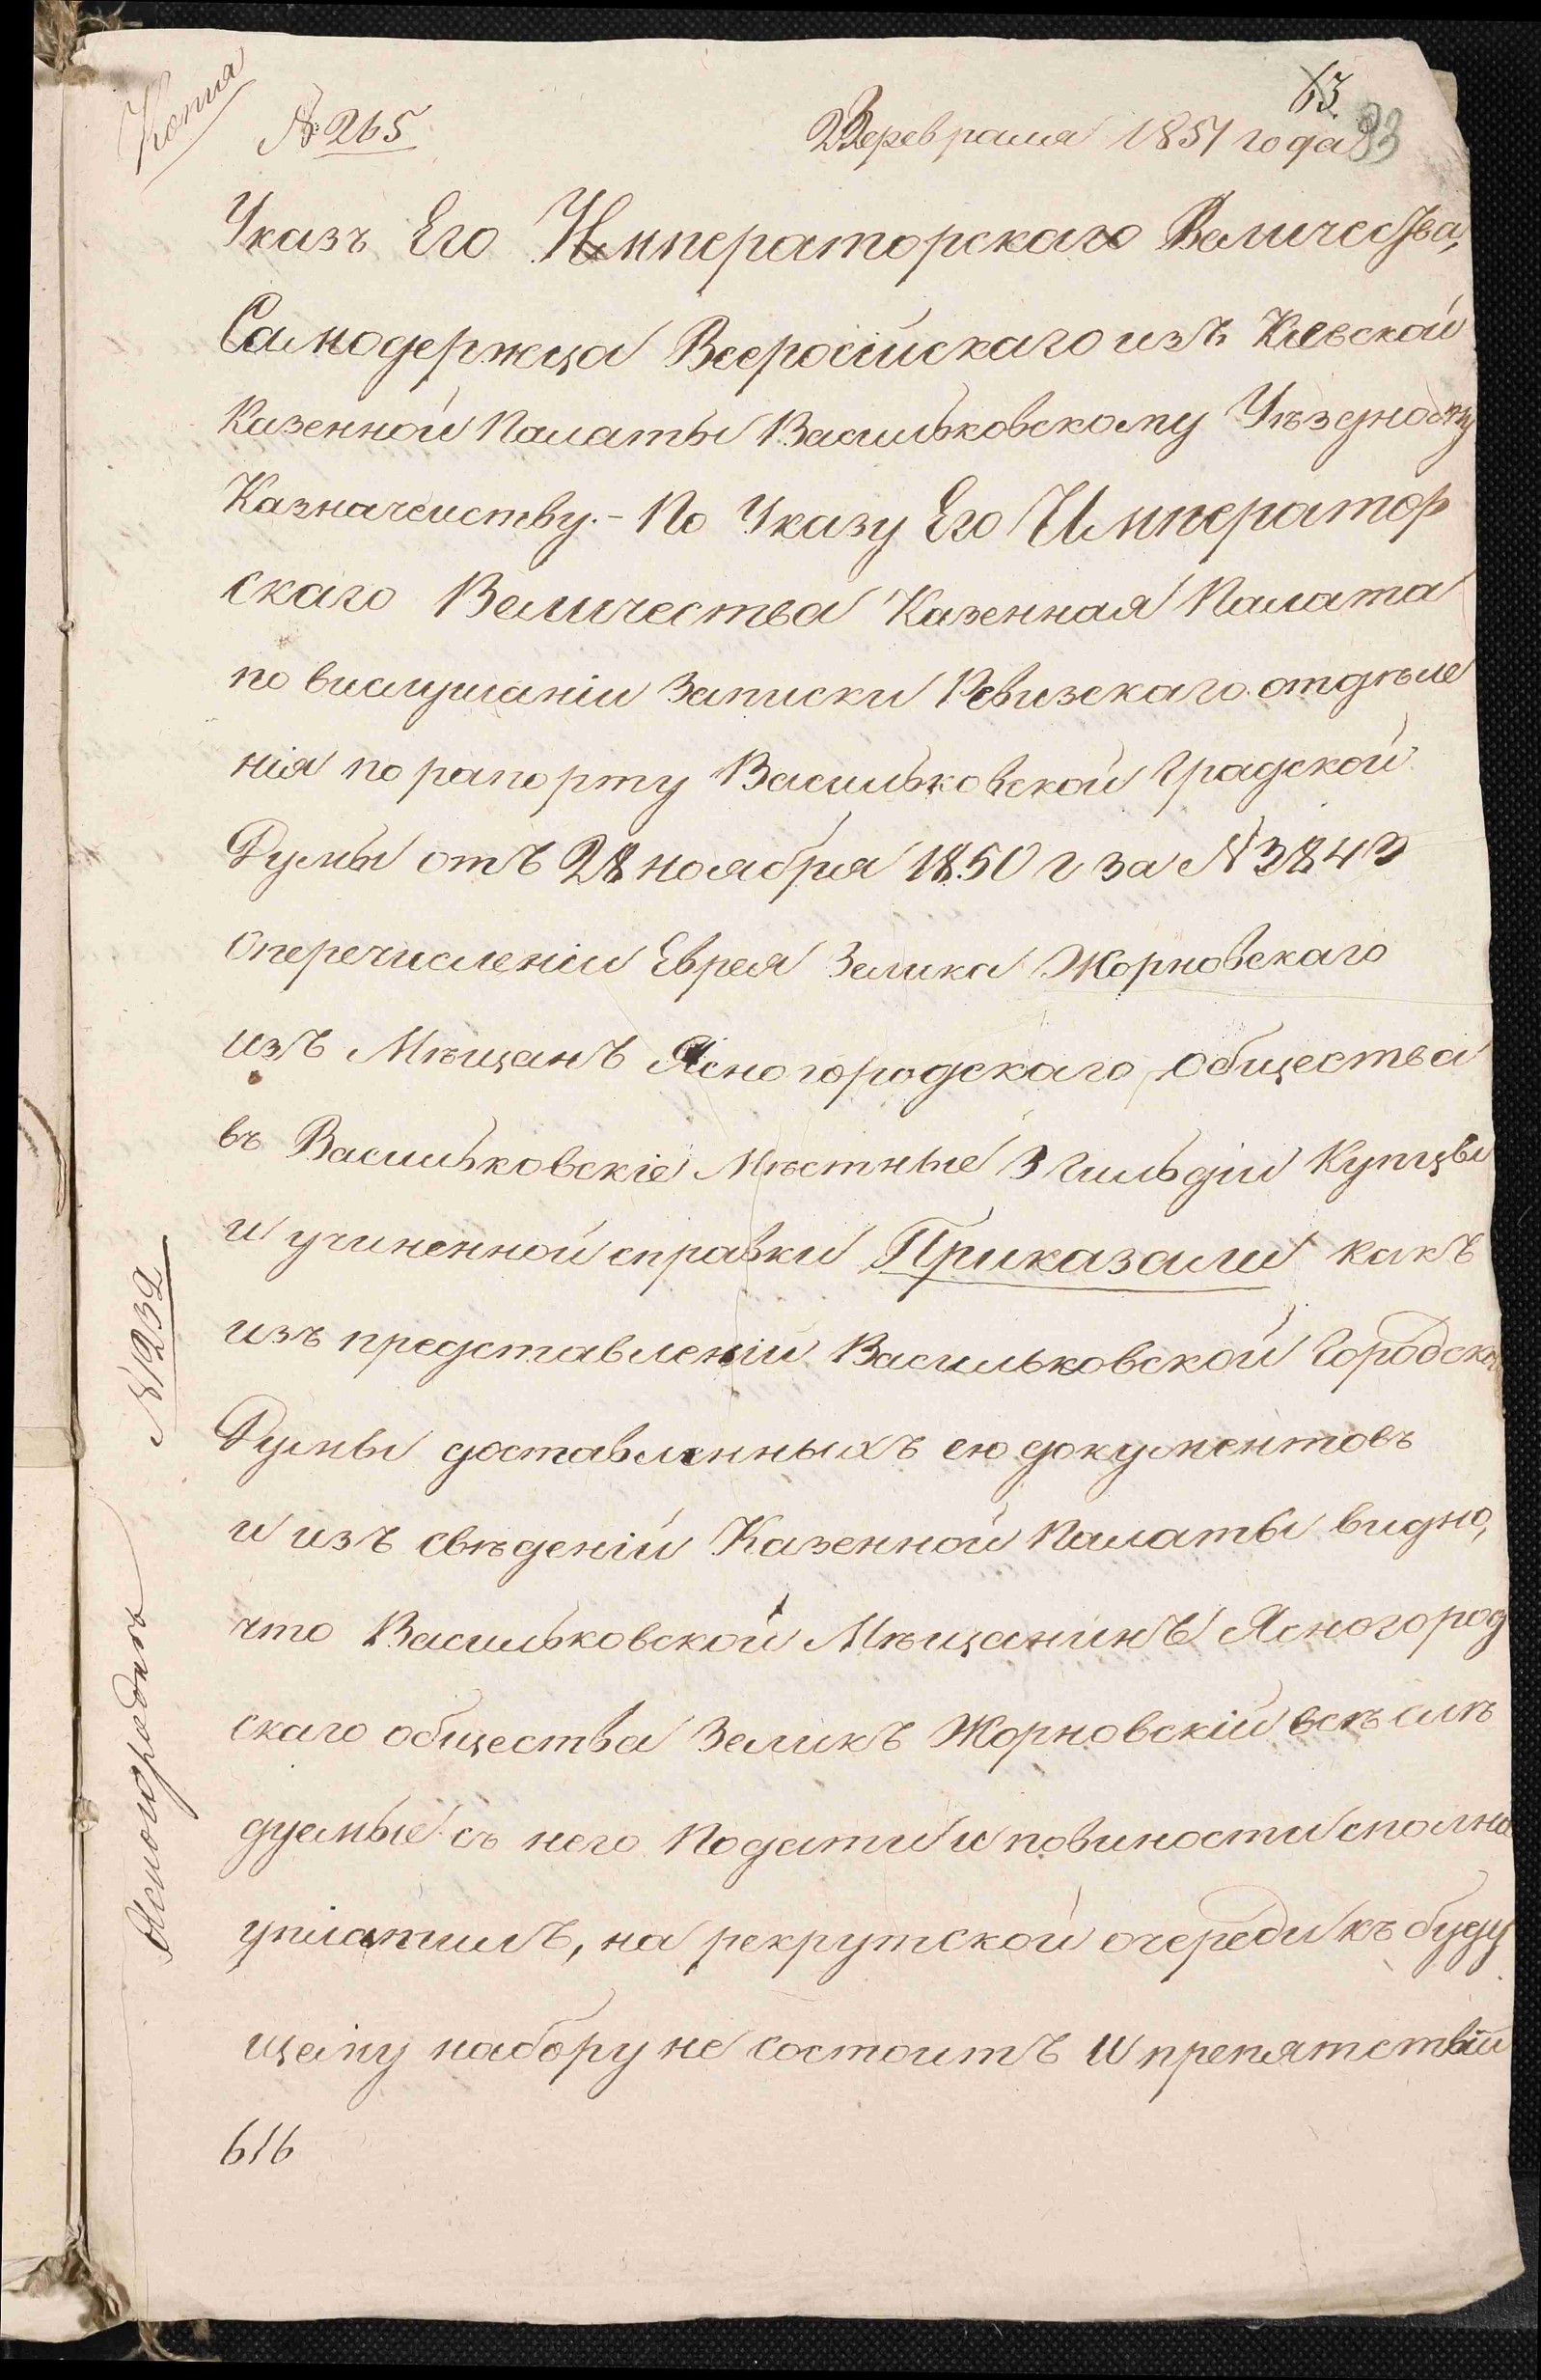 Копия
63
№ 265
Февраля 1851 года 93
Указъ Его Императорскаго Величества,
Самодержца Всеросійскаго изъ Кіевской
Казенной Палаты Васильковскому Уѣздному
Казначейству.- По Указу Его Император
скаго Величества Казенная Палата
по выслушаніи Записки Ревизскаго отдѣле
нія по рапорту Васильковской Градской
Думы отъ 28 ноября 1850 г за № 3843
о перечисленіи Еврея Зелика Жорновскаго
изъ Мѣщанъ Ясногородскаго общества
въ Васильковскіе Мѣстные 3 Гильдіи Купцы
и учиненной справки Приказали какъ
изъ представленій Васильковской Городской
Думы доставленныхъ ею документовъ
и изъ свѣденій Казенной Палаты видно,
что Васильковской Мѣщанинъ Ясногород
скаго общества Зеликъ Жорновскій всѣ слѣ
дуемые съ него Подати и повиности сполна
уплатилъ, на рекрутской очереди къ буду
щему набору не состоитъ и препятствій
616
№ 232